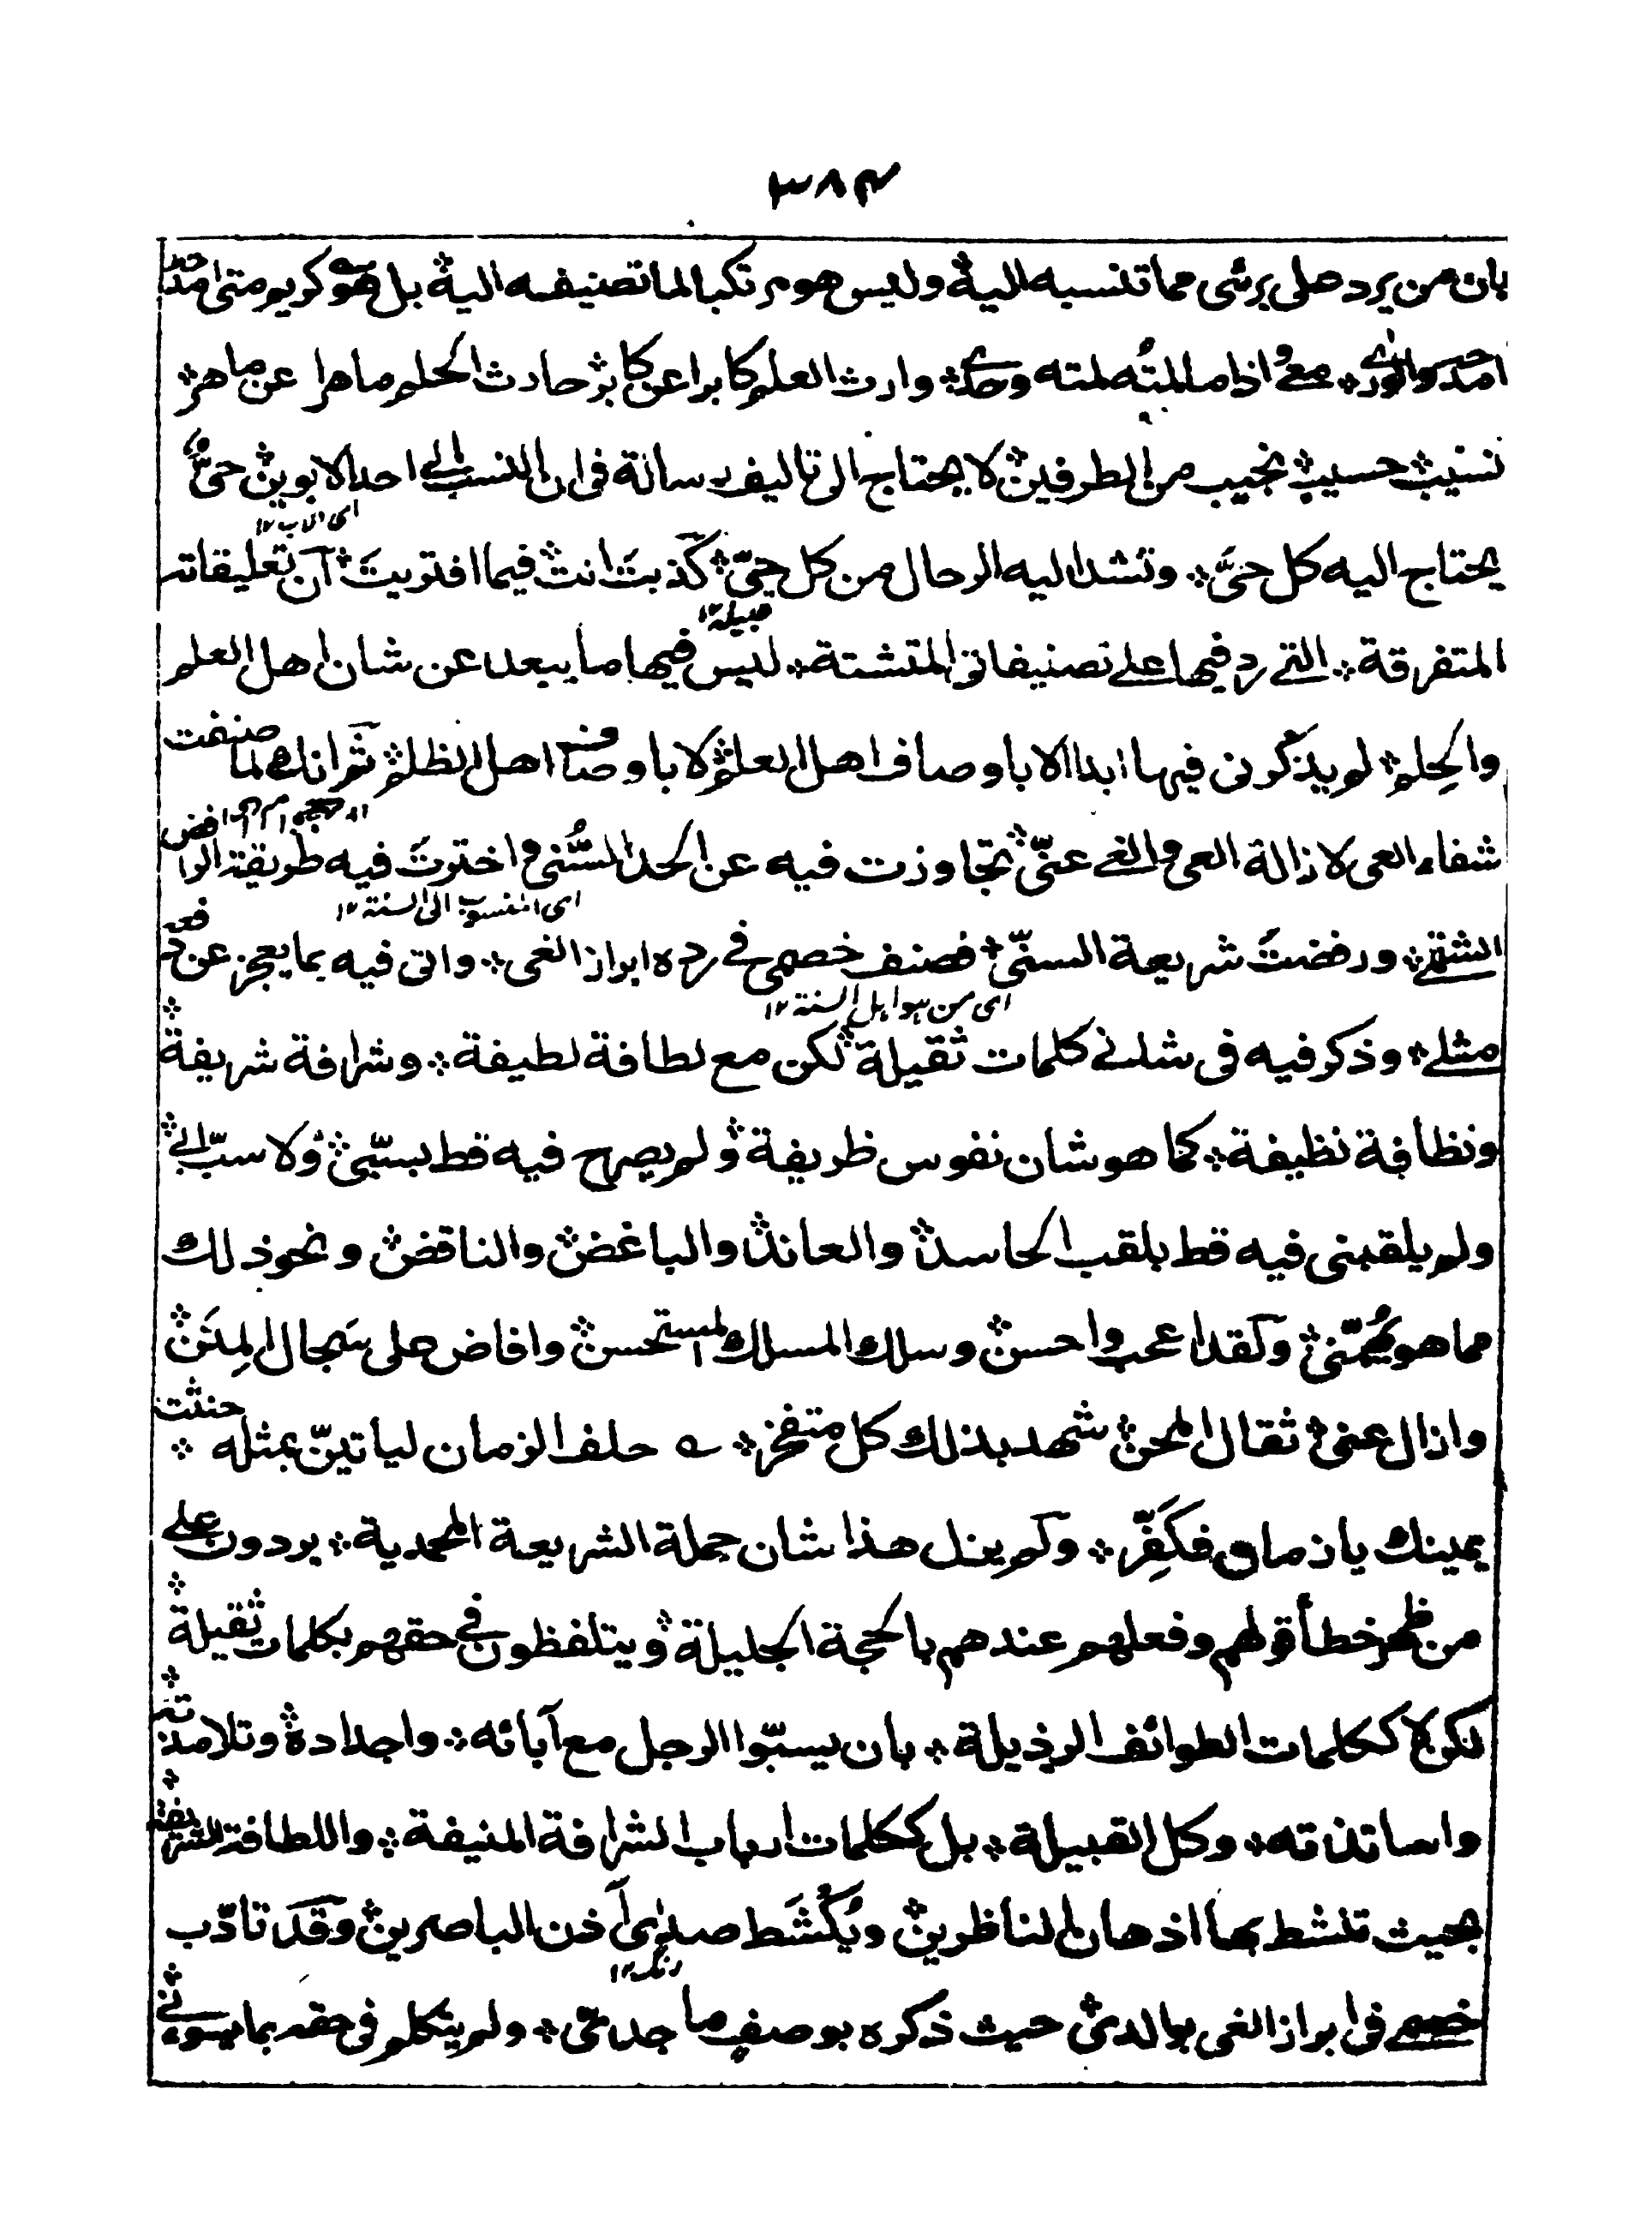 ٣٨٤
بان من يرد على برئى مما تنسبه اليه ۞ وليس هو مرتكبا لما تصنيفه اليه ۞ بل هو كريم متى امدحه
امدحه والورى ۞ معى واذا ما لمته لمته وحدى ۞ وارث العلم كابرا عن كابر ۞ حادث الحلم ماهرا عن ماهر ۞
نسيب ۞ حسيب ۞ نجيب من الطرفين ۞ لا يحتاج الى تاليف رسالة فى ان النسب الى احد الابوين ۞ حىّ
اى الاب ١٢
يحتاج اليه كل حىّ ۞ وتشد اليه الرحال من كل حىّ ۞ كذبت انت ۞ فيما افتريت ۞ آن تعليقاته
قبيلة ١٢
المتفرقة ۞ التى رد فيها على تصنيفاتى المتشتة ۞ ليس فيها ما يبعد عن شان اهل العلم
والحِلم ۞ لم يذكرنى فيها ابدا الا باوصاف اهل العلم ۞ لا باوصاف اهل الظلم ۞ ثم انك لما صنفت
شفاء العى لازالة العى والغى عنّى ۞ تجاوزت فيه عن الحد السُّنى واخترتَ فيه طريقة الروافض
اى المنسوب الى السنة ١٢
الشقى ۞ ورفضتَ شريعة السنّى ۞ فصنف خصمى فى رده ابراز الغى ۞ واتى فيه بما يعجز عن دفعه
اى من هو اهل السنة ١٢
مثلى ۞ وذكر فيه فى شانى كلمات ثقيلة ۞ لكن مع لطافة لطيفة ۞ وشرافة شريفة ۞
ونظافة نظيفة ۞ كما هو شان نفوس ظريفة ۞ ولم يصرح فيه قط بسبّى ۞ ولا سبّ ابى ۞
ولم يلقبنى فيه قط بلقب الحاسد ۞ والعاند ۞ والباغض ۞ والناقض ۞ ونحو ذلك
مما هو يُهمّنى ۞ ولقد اعجب واحسن ۞ وسلك المسلك المستحسن ۞ وافاض على سَجال المِنَن ۞
وازال عنى ۞ ثقال المحن ۞ شهد بذلك كل متفخر ۞ ؎ حلف الزمان لياتينّ بمثله ۞ حنثت
يمينك يا زمان فكَفِّر ۞ ولم يزل هذا شان حملة الشريعة المحمدية ۞ يردون على
من ظهر خطأ قولهم وفعلهم عندهم بالحجة الجليلة ۞ ويتلفظون فى حقهم بكلمات ثقيلة ۞
لكن لا ككلمات الطوائف الرذيلة ۞ بان يسبّوا الرجل مع آبائه ۞ واجداده ۞ وتلامذته ۞
واساتذته ۞ وكل القبيلة ۞ بل ككلمات ارباب الشرافة المنيفة ۞ واللطافة الشريفة ۞
بحيث تنشط بها اذهان الناظرين ۞ ويُكْشَط صدأى آذن الباصرين ۞ وقد تادّب
زنگ ١٢
خصمى فى ابراز الغى بوالدى ۞ حيث ذكره بوصفٍ ما جد حى ۞ ولم يتكلم فى حقه بما يسوءنى ۞